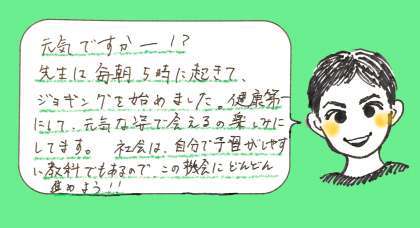 元気ですかー!?
先生は毎朝5時に起きて、
ジョギングを始めました。健康第一
にして、元気な姿で会えるの楽しみに
してます。 社会は、自分で予習がしやす
い教科でもあるので、この機会にどんどん
進めよう!!